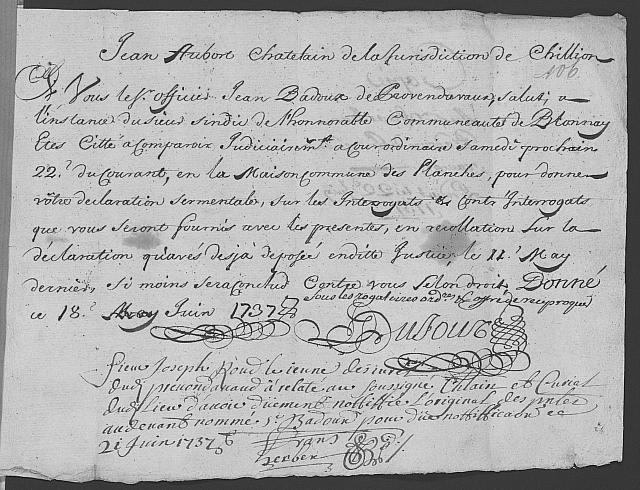 Jean Aubort Chatelain de la Jurisdiction de Chillion
106
A Vous le Sr. officier Jean Badoux de Provendavaux, salut; a
l'instance du sieur sindic de l'honnorable Communeauté de Blonnay
Etes Citté a Comparoir Judiciairemt. a Cour ordinaire samedi prochain
22.e du Courant, en la Maison Commune des Planches, pour donner
vôtre declaration sermentale, sur les Interrogats & Contr'Interrogats
que vous seront fournis avec les presentes, en recollation sur la
declaration qu'avés desja deposée en ditte Justice, le 11.e May
dernier, si moins sera Conclud Contre vous selon droit, Donné
ce 18.e Juin 1737
sous les rogatoires ordres & offre de reciproque
Dufour
sieur Joseph le jeune des jurez
dud. a relaté au soussigné Chlain et Curial
dud. lieu d'avoir düement nottiffié l'original des pntes
au devant nommé Sr. Badoux pour düe nottiffication ce
21 Juin 1737